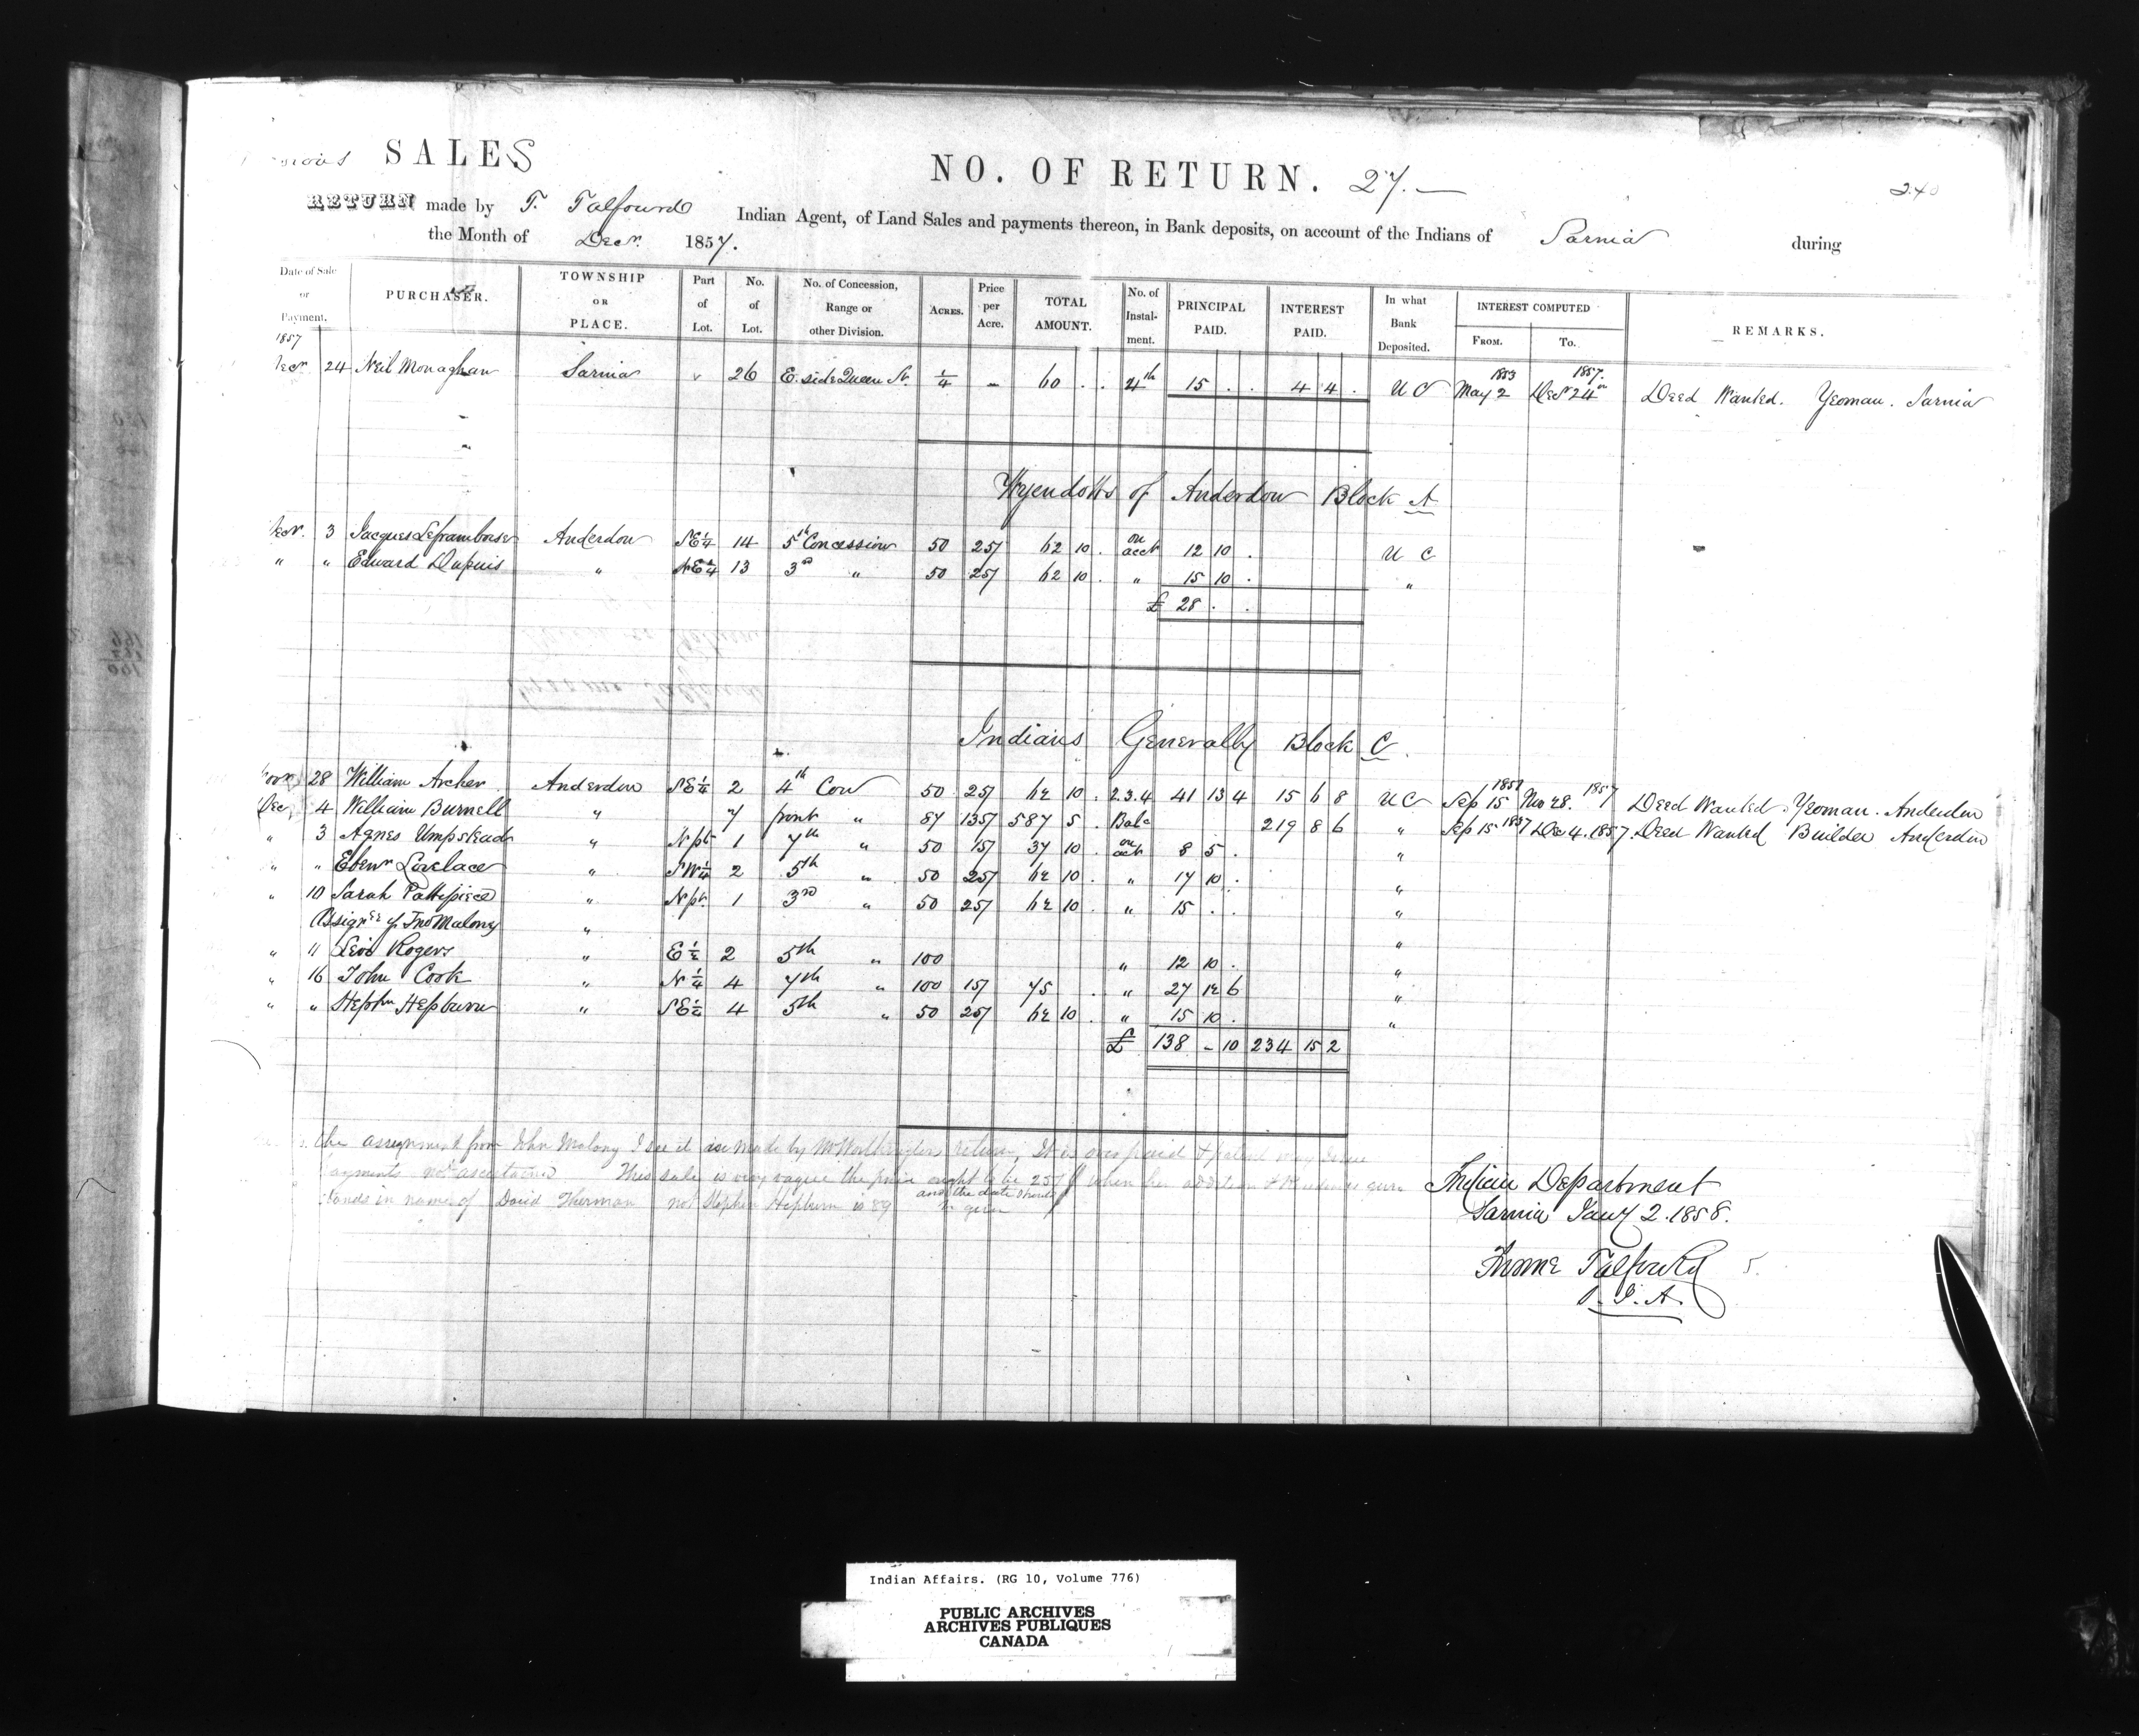 SALES
NO. OF RETURN. 27.—
240
RETURN made by T. Talfourd Indian Agent, of Land Sales and payments thereon, in Bank deposits, on account of the Indians of Sarnia during
the Month of Decr. 1857.
Date of Sale or Payment. PURCHASER. TOWNSHIP OR PLACE. Part of Lot. No. of Lot. No. of Concession, Range or other Division. ACRES. Price per Acre. TOTAL AMOUNT. No. of Instalment. PRINCIPAL PAID. INTEREST PAID. In what Bank Deposited. INTEREST COMPUTED FROM. To. REMARKS.
1857
Decr 24 Neil Monaghan Sarnia 26 E. side Queen St. 1/4 – 60 . . 4th 15 . . 4 4 . U C 1853 May 2 1857. Decr 24th Deed Wanted. Yeoman. Sarnia
Wyendotts of Anderdon Block A
Decr. 3 Jacques Leframboise Anderdon SE 1/4 14 5th Concession 50 25/ 62 10 . on acct 12 10 . U C
" " Edward Dupuis " NE 1/4 13 3rd " 50 25/ 62 10 . " 15 10 . "
£ 28 . .
Indians Generally Block C.
28 William Archer Anderdon SE 1/4 2 4th Con 50 25/ 62 10 . 2.3.4 41 13 4 15 6 8 U C Sep 15 1851 Nov 28. 1857 Deed Wanted. Yeoman. Anderdon
Dec 4 William Burnell " 7 front " 87 135/ 587 5 . Bale 219 8 6 " Sep 15 1837 Dec 4. 1857. Deed Wanted Builder Anderdon
" 3 Agnes Umpstead " N pt 1 7th " 50 15/ 37 10 . on acct 8 5 . "
" " Ebenr Lovelace " SW 1/4 2 5th " 50 25/ 62 10 . " 17 10 . "
" 10 Sarah Pattypiece " N pt. 1 3rd " 50 25/ 62 10 . " 15 . . "
Assignee of Jno Malony " "
" 11 Levi Rogers " E 1/2 2 5th " 100 " 12 10 . "
" 16 John Cook " N 1/4 4 7th " 100 15/ 75 . " 27 12 6 "
" " Stephn Hepburn " SE 1/2 4 5th " 50 25/ 62 10 . " 15 10 . "
£ 138 – 10 234 15 2
the assignment from John Malony I see it is made by return, It is over paid & patent may issue
payments not ascertained This sale is very vague the price ought to be 25/
and the date should be given
stands in name of David Thurman not Stephen Hepburn
Indian Department
Sarnia Jany 2. 1858.
Froome Talfourd
S. I. A.
Indian Affairs. (RG 10, Volume 776)
PUBLIC ARCHIVES
ARCHIVES PUBLIQUES
CANADA